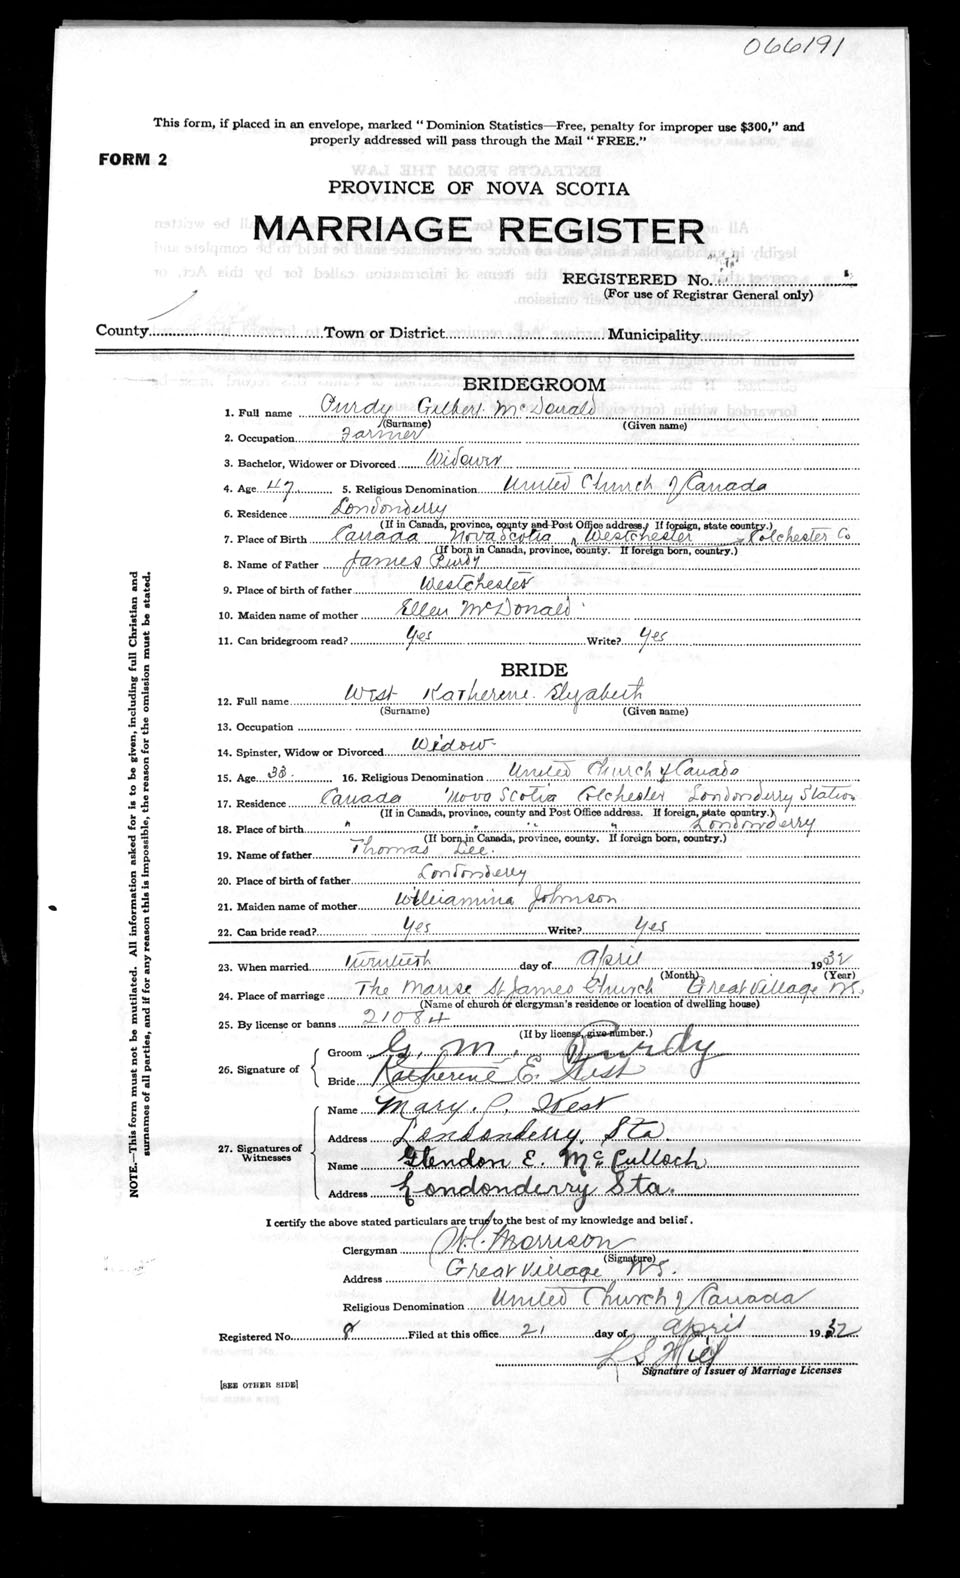 066191
This form, if placed in an envelope, marked " Dominion Statistics—Free, penalty for improper use $300," and
properly addressed will pass through the Mail " FREE."
FORM 2
PROVINCE OF NOVA SCOTIA
MARRIAGE REGISTER
REGISTERED No.
(For use of Registrar General only)
County Town or District Municipality
BRIDEGROOM
1. Full name Purdy Gilbert McDonald
(Surname) (Given name)
2. Occupation Farmer
3. Bachelor, Widower or Divorced Widower
4. Age 47 5. Religious Denomination United Church of Canada
6. Residence Londonderry
(If in Canada, province, county and Post Office address. If foreign, state country.)
7. Place of Birth Canada Nova Scotia Westchester Colchester Co
(If born in Canada, province, county. If foreign born, country.)
8. Name of Father James Purdy
9. Place of birth of father Westchester
10. Maiden name of mother Ellen McDonald
11. Can bridegroom read? Yes Write? Yes
BRIDE
12. Full name West Katherene Elyzabeth
(Surname) (Given name)
13. Occupation
14. Spinster, Widow or Divorced Widow
15. Age 38. 16. Religious Denomination United Church of Canada
17. Residence Canada Nova Scotia Colchester Londonderry Station
(If in Canada, province, county and Post Office address. If foreign, state country.)
18. Place of birth " " " " Londonderry
(If born in Canada, province, county. If foreign born, country.)
19. Name of father Thomas Lee.
20. Place of birth of father Londonderry
21. Maiden name of mother Williamina Johnson
22. Can bride read? Yes Write? Yes
23. When married twentieth day of April 1932
(Month) (Year)
24. Place of marriage The Manse St James Church Great Village N.S.
(Name of church or clergyman's residence or location of dwelling house)
25. By license or banns 21084
(If by license, give number.)
26. Signature of Groom G. M. Purdy
Bride Katherene E. West
27. Signatures of Witnesses Name Mary. C. West
Address Londonderry, Sta.
Name Glendon E. McCulloch
Address Londonderry Sta.
I certify the above stated particulars are true to the best of my knowledge and belief.
Clergyman Morrison
(Signature)
Address Great Village N.S.
Religious Denomination United Church of Canada
Registered No. 8 Filed at this office 21 day of April 1932
L S Hill
Signature of Issuer of Marriage Licenses
[SEE OTHER SIDE]
NOTE.—This form must not be mutilated. All information asked for is to be given, including full Christian and
surnames of all parties, and if for any reason this is impossible, the reason for the omission must be stated.